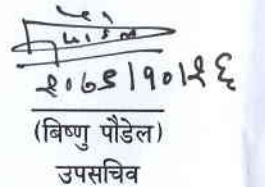 २०७९।१०।१६
(बिष्णु पौडेल)
उपसचिव